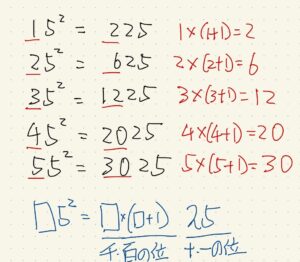 15² = 225 1×(1+1)=2
25² = 625 2×(2+1)=6
35² = 1225 3×(3+1)=12
45² = 2025 4×(4+1)=20
55² = 3025 5×(5+1)=30
□5² = □×(□+1) 25
千百の位 十一の位